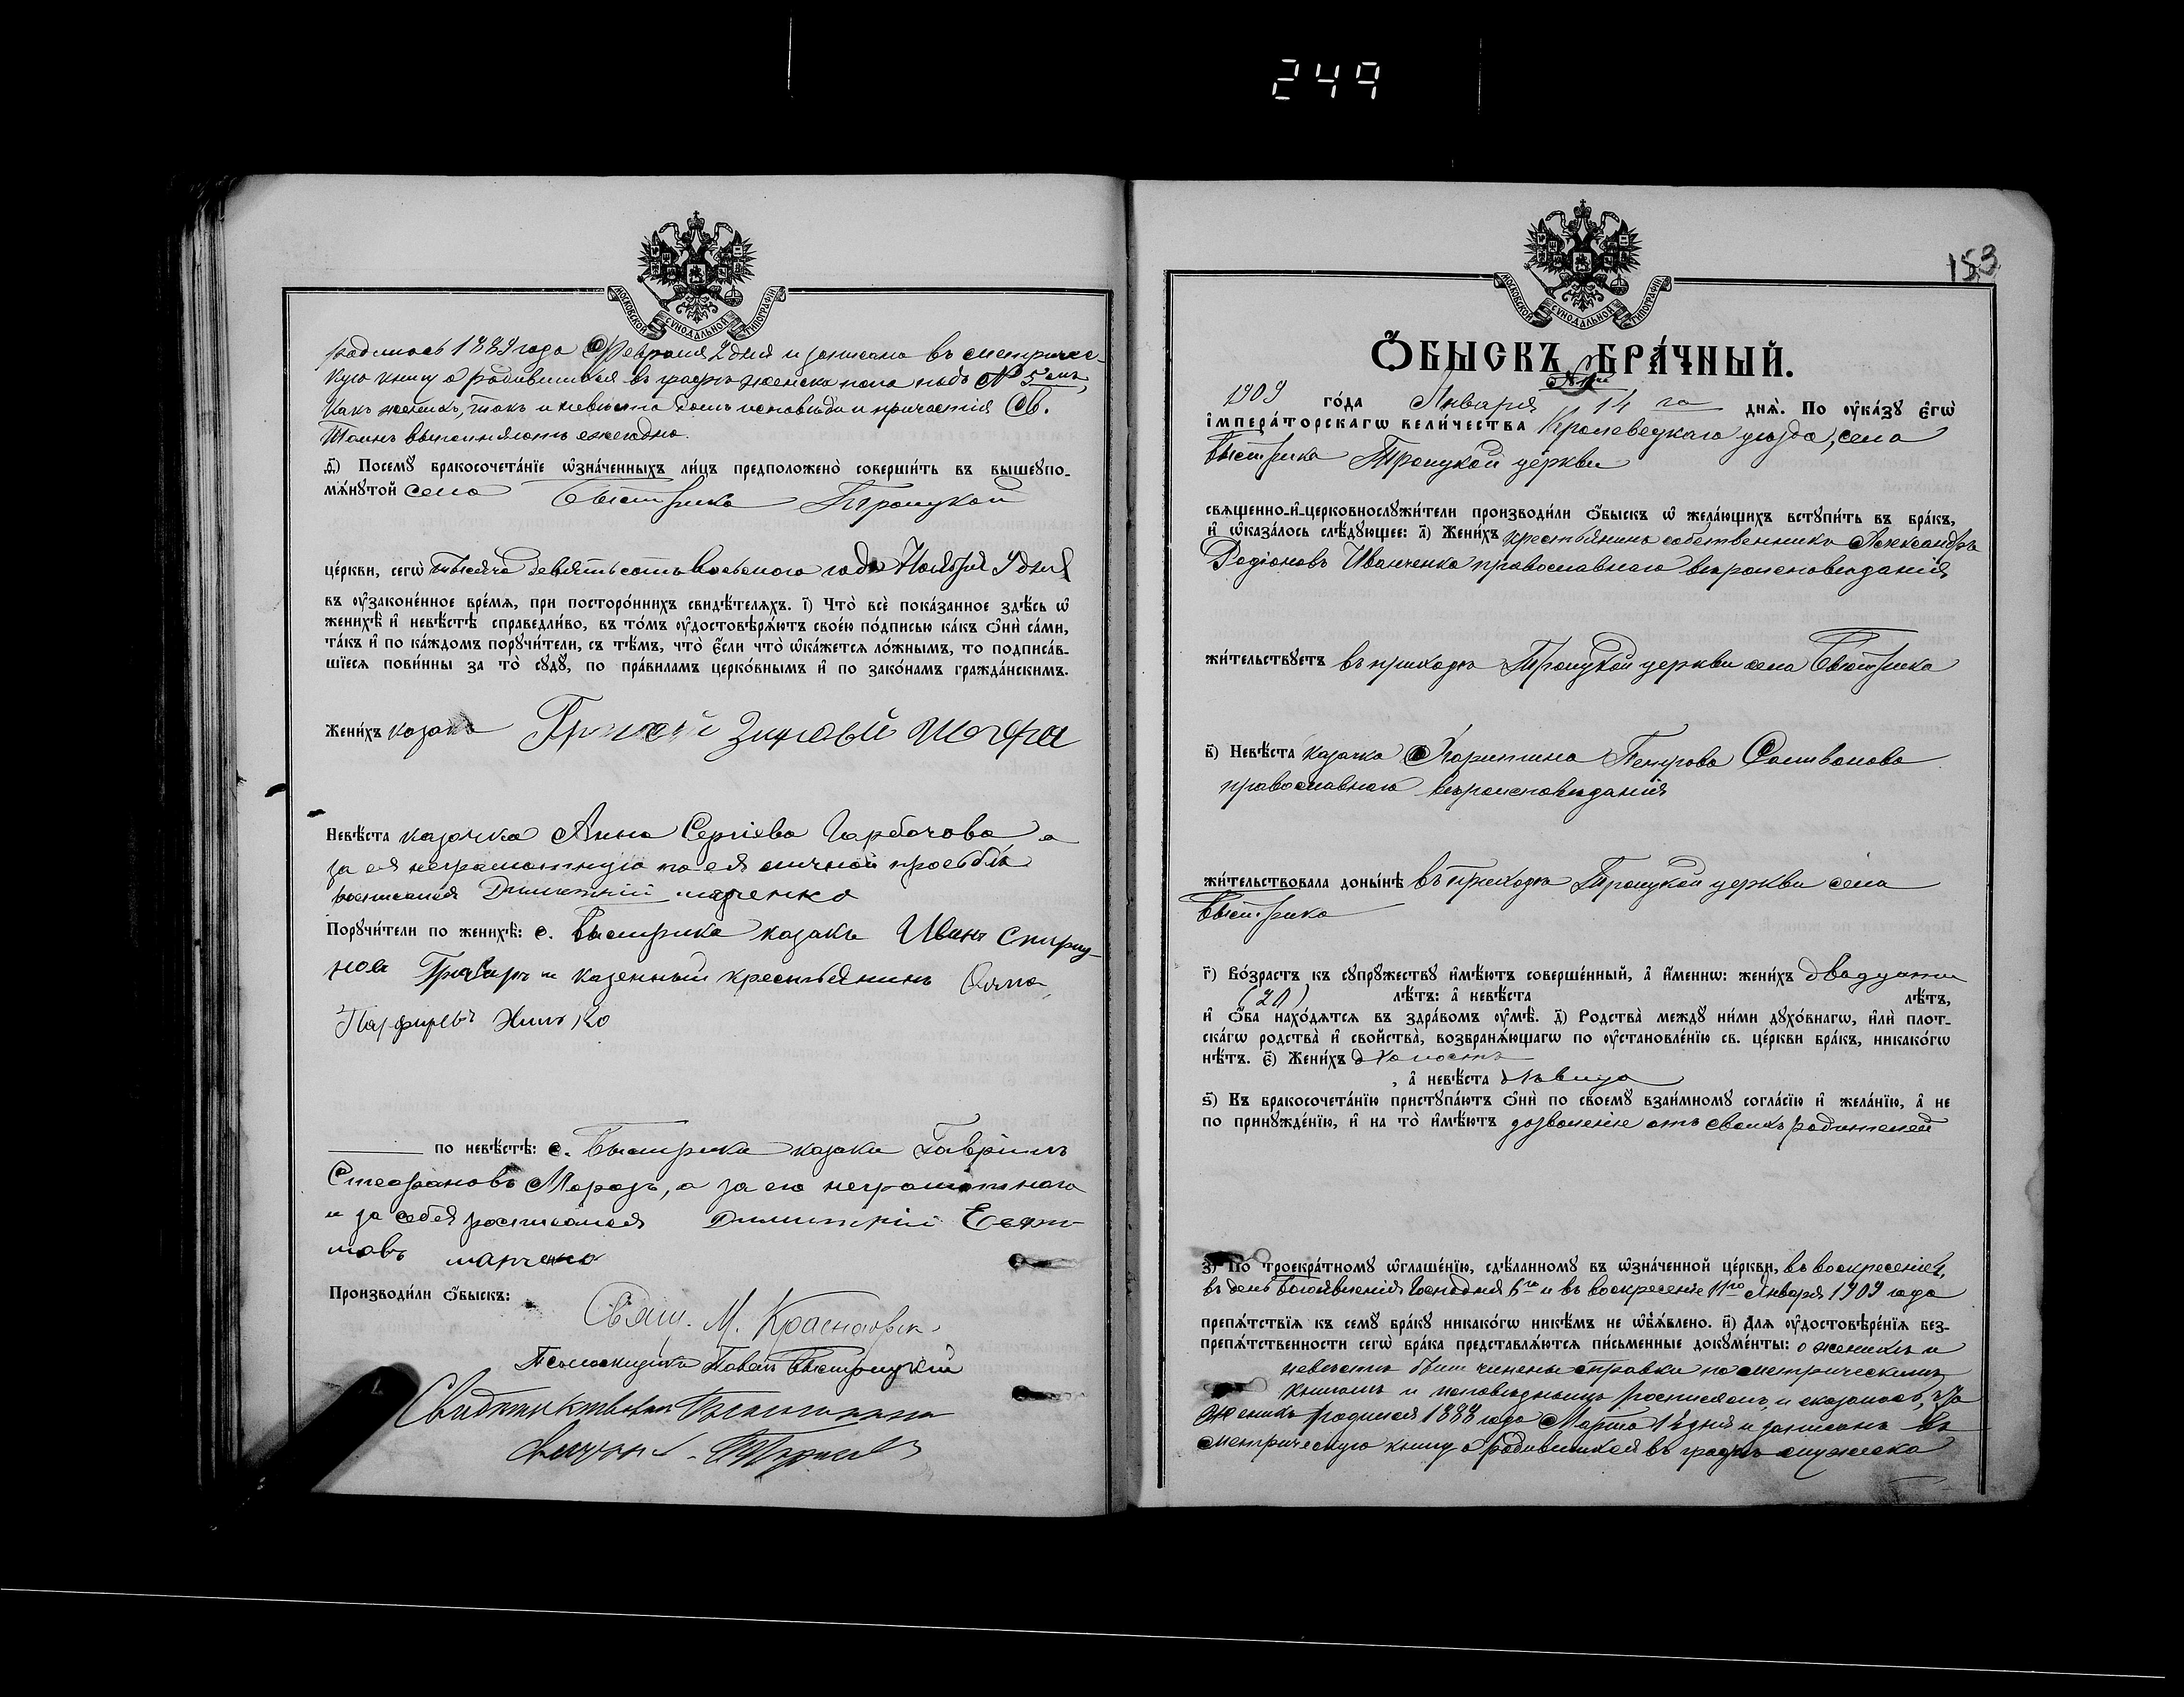 249
МОСКОВСКОЙ СѴНОДАЛЬНОЙ ТИПОГРАФІИ
родилась 1889 года Февраля 2 дня и записана въ метричес-
кую книгу о родившихся въ графѣ женска пола подъ № 5
Какъ женихъ, такъ и невѣста долгъ исповѣди и причастія Св.
Таинъ выполняютъ ежегодно.
Посемꙋ бракосочета́нїе ѡ҆зна́ченныхъ ли́цъ предположено̀ соверши́ть въ вышеꙋпо-
мѧ́нꙋтой села Быстрика Троицкой
це́ркви, сегѡ̀ тысяча девятьсотъ восьмого года Ноября 9 дня
въ ᲂу҆законе́нное вре́мѧ, при посторо́ннихъ свидѣ́телѧхъ. і҃) Что̀ всѐ пока́занное здѣ́сь ѡ҆
женихѣ̀ и҆ невѣ́стѣ справедли́во, въ то́мъ ᲂу҆достовѣрѧ́ютъ свое́ю по́дписью ка́къ ѻ҆нѝ са́ми,
та́къ и҆ по ка́ждомъ порꙋчи́тели, съ тѣ́мъ, что̀ є҆́сли что̀ ѡ҆ка́жетсѧ ло́жнымъ, то подписа́в-
шїесѧ пови́нны за то̀ сꙋдꙋ̀, по пра́виламъ церко́внымъ и҆ по зако́намъ гражда́нскимъ.
Жени́хъ казакъ
Невѣ́ста казачка Анна Сергіева Гарбачова а
за ея неграмотную по ея личной просьбѣ
росписался Димитрій
Порꙋчи́тели по женихѣ̀: с. Быстрика казакъ Иванъ Спиридо-
новъ и казенный крестьянинъ
по невѣ́стѣ: с. Быстрика казаки Гавріилъ
Стефановъ Морозъ, а за его неграмотнаго
и за себя росписался Димитрій
Производи́ли ѻ҆́быскъ:
Свящ. М.
Псаломщикъ Павелъ Быстрицкій
МОСКОВСКОЙ СѴНОДАЛЬНОЙ ТИПОГРАФІИ
153
Ѻ҆́БЫСКЪ БРА́ЧНЫЙ.
1909 го́да Января 14 го днѧ̀. По ᲂу҆ка́зꙋ є҆гѡ̀
і҆мпера́торскагѡ вели́чества Кролевецкаго уѣзда, села
Быстрика Троицкой церкви
свѧщенно-и҆-церковнослꙋжи́тели производи́ли ѻ҆́быскъ ѡ҆ жела́ющихъ встꙋпи́ть въ бра́къ,
и҆ ѡ҆каза́лось слѣ́дꙋющее: а҃) Жени́хъ крестьянинъ собственникъ Александръ
Родіоновъ Иванченко православнаго вѣроисповѣданія
жи́тельствꙋетъ въ приходѣ Троицкой церкви села Быстрика
в҃) Невѣ́ста казачка Харитина Петрова
православнаго вѣроисповѣданія
жи́тельствовала доны́нѣ въ приходѣ Троицкой церкви села
Быстрика
г҃) Во́зрастъ къ сꙋпрꙋ́жествꙋ и҆мѣ́ютъ соверше́нный, а҆ и҆́менно: жени́хъ двадцати
(20) лѣ́тъ: а҆ невѣ́ста лѣ́тъ,
и҆ ѻ҆́ба нахо́дѧтсѧ въ здра́вомъ ᲂу҆мѣ̀. д҃) Родства̀ междꙋ ни́ми дꙋхо́внагѡ, и҆лѝ плот-
ска́гѡ родства̀ и҆ сво́йства, возбранѧ́ющагѡ по ᲂу҆становле́нїю св. це́ркви бра́къ, никако́гѡ
нѣ́тъ. є҃) Жени́хъ холостъ
, а҆ невѣ́ста дѣвица
ѕ҃) Къ бракосочета́нїю пристꙋпа́ютъ ѻ҆нѝ по своемꙋ̀ взаи́мномꙋ согла́сїю и҆ жела́нїю, а҆ не
по принꙋжде́нїю, и҆ на то̀ и҆мѣ́ютъ дозволеніе отъ своихъ родителей
з҃) По троекра́тномꙋ ѡ҆глаше́нїю, сдѣ́ланномꙋ въ ѡ҆зна́ченной це́ркви, въ воскресеніе
въ день Богоявленія Господня 6го и въ воскресеніе 11го Января 1909 года
препѧ́тствїѧ къ семꙋ̀ бра́кꙋ никако́гѡ никѣ́мъ не ѡ҆б̾ѧ́влено. и҃) Длѧ ᲂу҆достовѣре́нїѧ без-
препѧ́тственности сегѡ̀ бра́ка представлѧ́ютсѧ пи́сьменные докꙋме́нты: о женихѣ и
невѣстѣ были чинены справки по метрическимъ
книгамъ и исповѣднымъ росписямъ, и оказалось, что
женихъ родился 1888 года Марта дня и записанъ въ
метрическую книгу о родившихся въ графѣ мужска